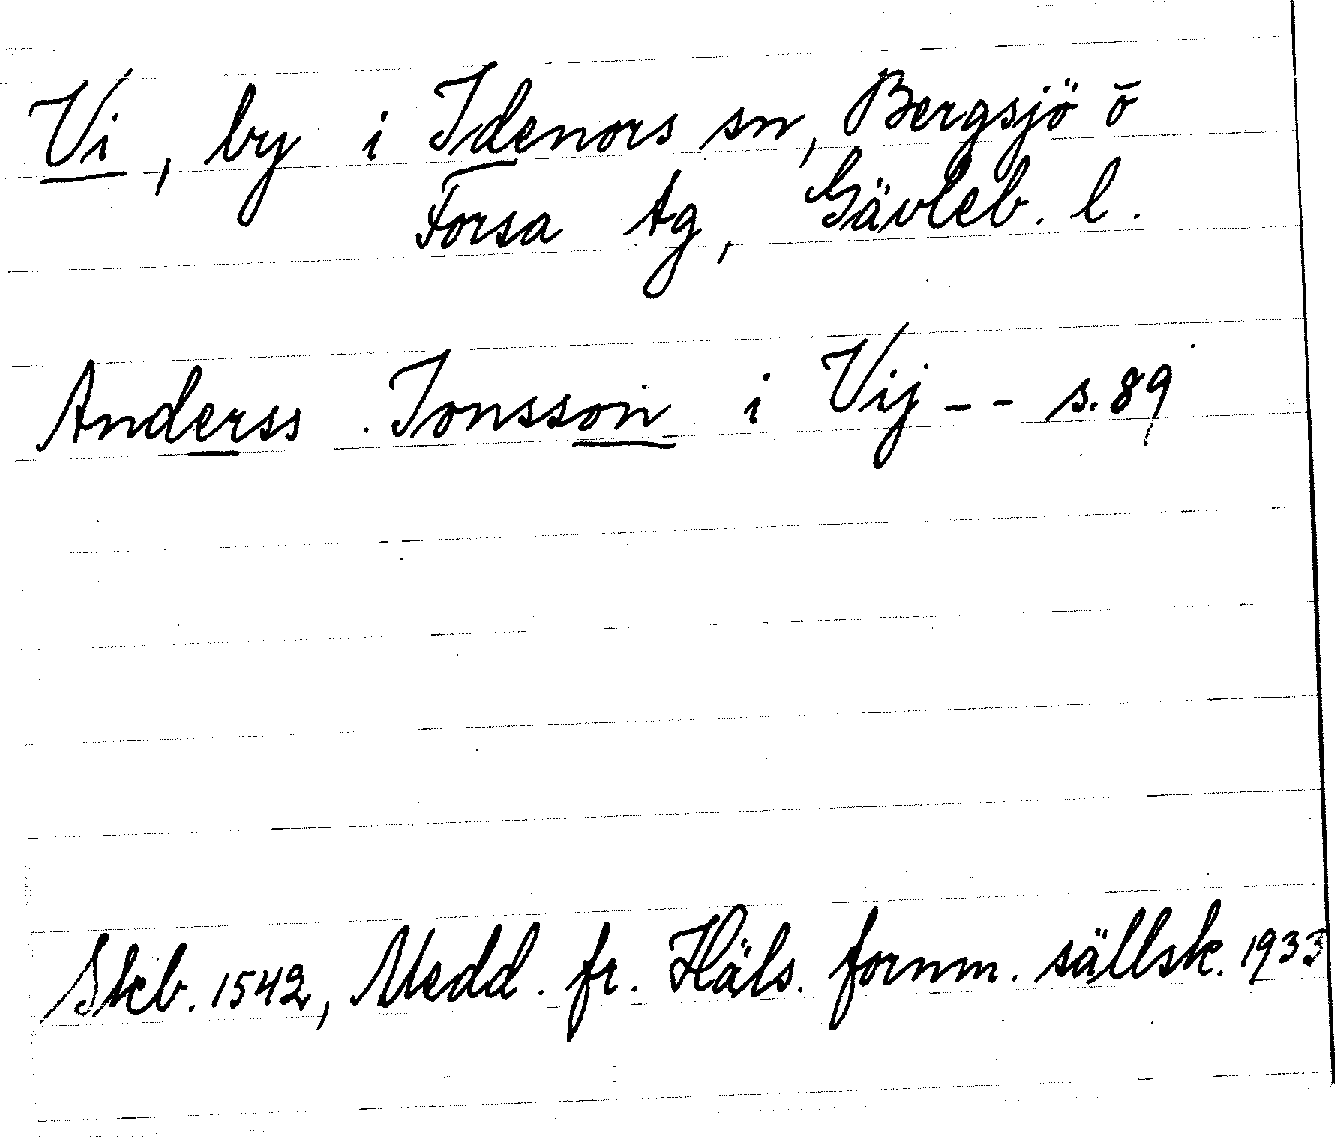 Vi, by i Idenors sn, Bergsjö o
Forsa tg, Gävleb. l.
Anderss Jonsson i Vij -- s. 89
Skb. 1542, Medd. fr. Häls. fornm. sällsk. 1933